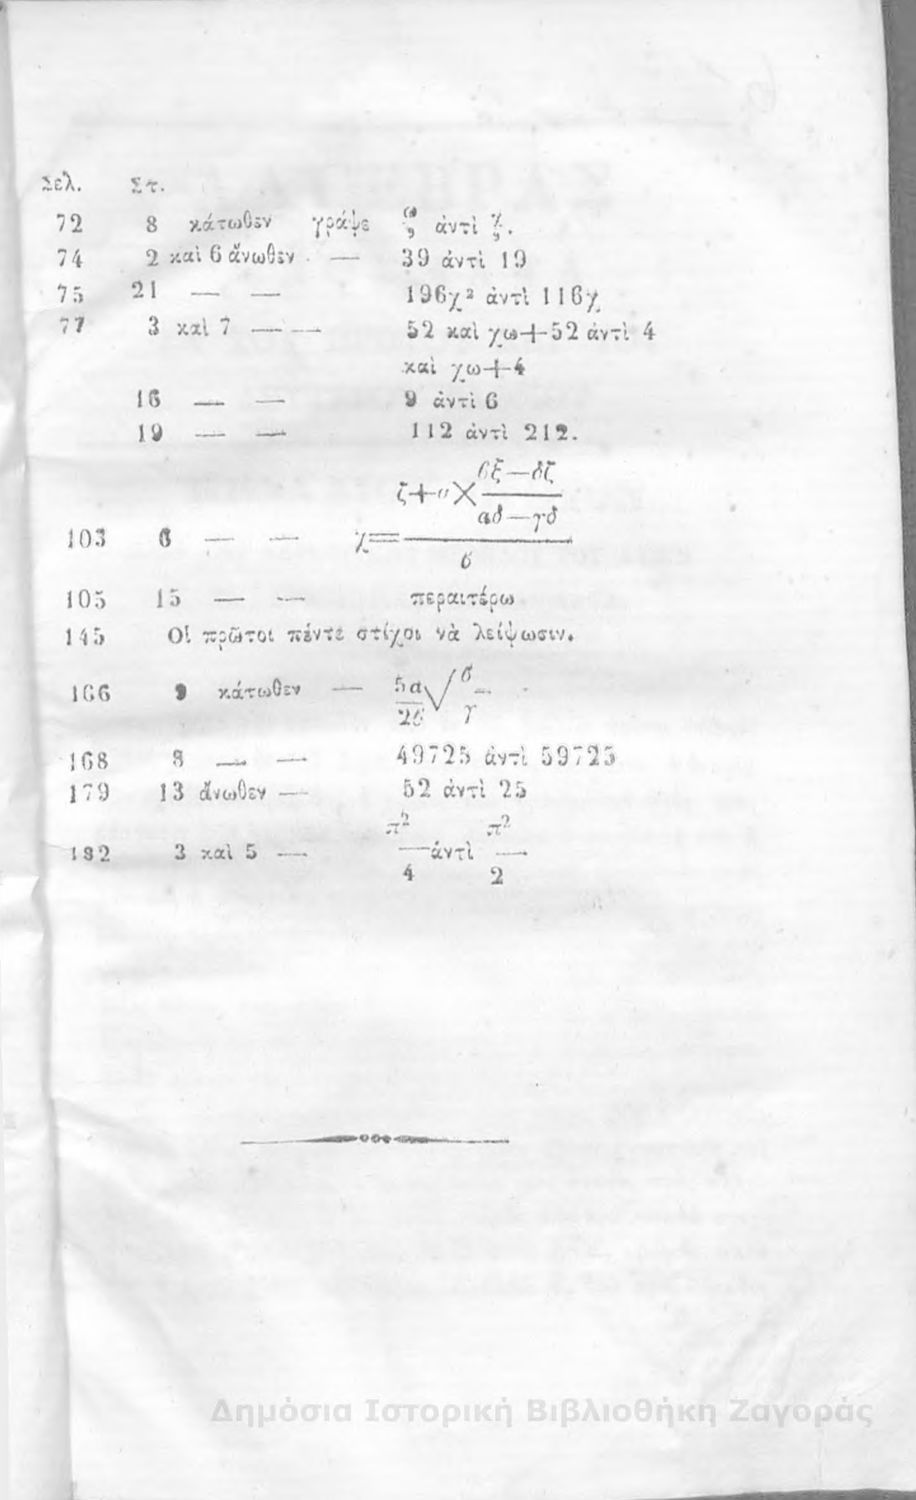 Σελ. Στ.
72 8 κάτωθεν γράψε ἀντὶ
74 2 καὶ 6 ἄνωθεν — 39 ἀντὶ 19
75 21 — — 196χ² ἀντὶ 116χ
77 3 καὶ 7 — — 52 καὶ χω+52 ἀντὶ 4
καὶ χω+4
16 — — 9 ἀντὶ 6
19 — — 112 ἀντὶ 212.
ϐξ—δζ
ζ+ × ———
αδ—γδ
103 6 — — χ= ———
ϐ
105 15 — — περαιτέρω
145 Οἱ πρῶτοι πέντε στίχοι νὰ λείψωσιν.
166 9 κάτωθεν — 5α/2ϐ √ ϐ/γ
168 8 — — 49725 ἀντὶ 59725
179 13 ἄνωθεν — 52 ἀντὶ 25
π² π²
182 3 καὶ 5 — — ἀντὶ —
4 2
Δημόσια Ιστορική Βιβλιοθήκη Ζαγοράς